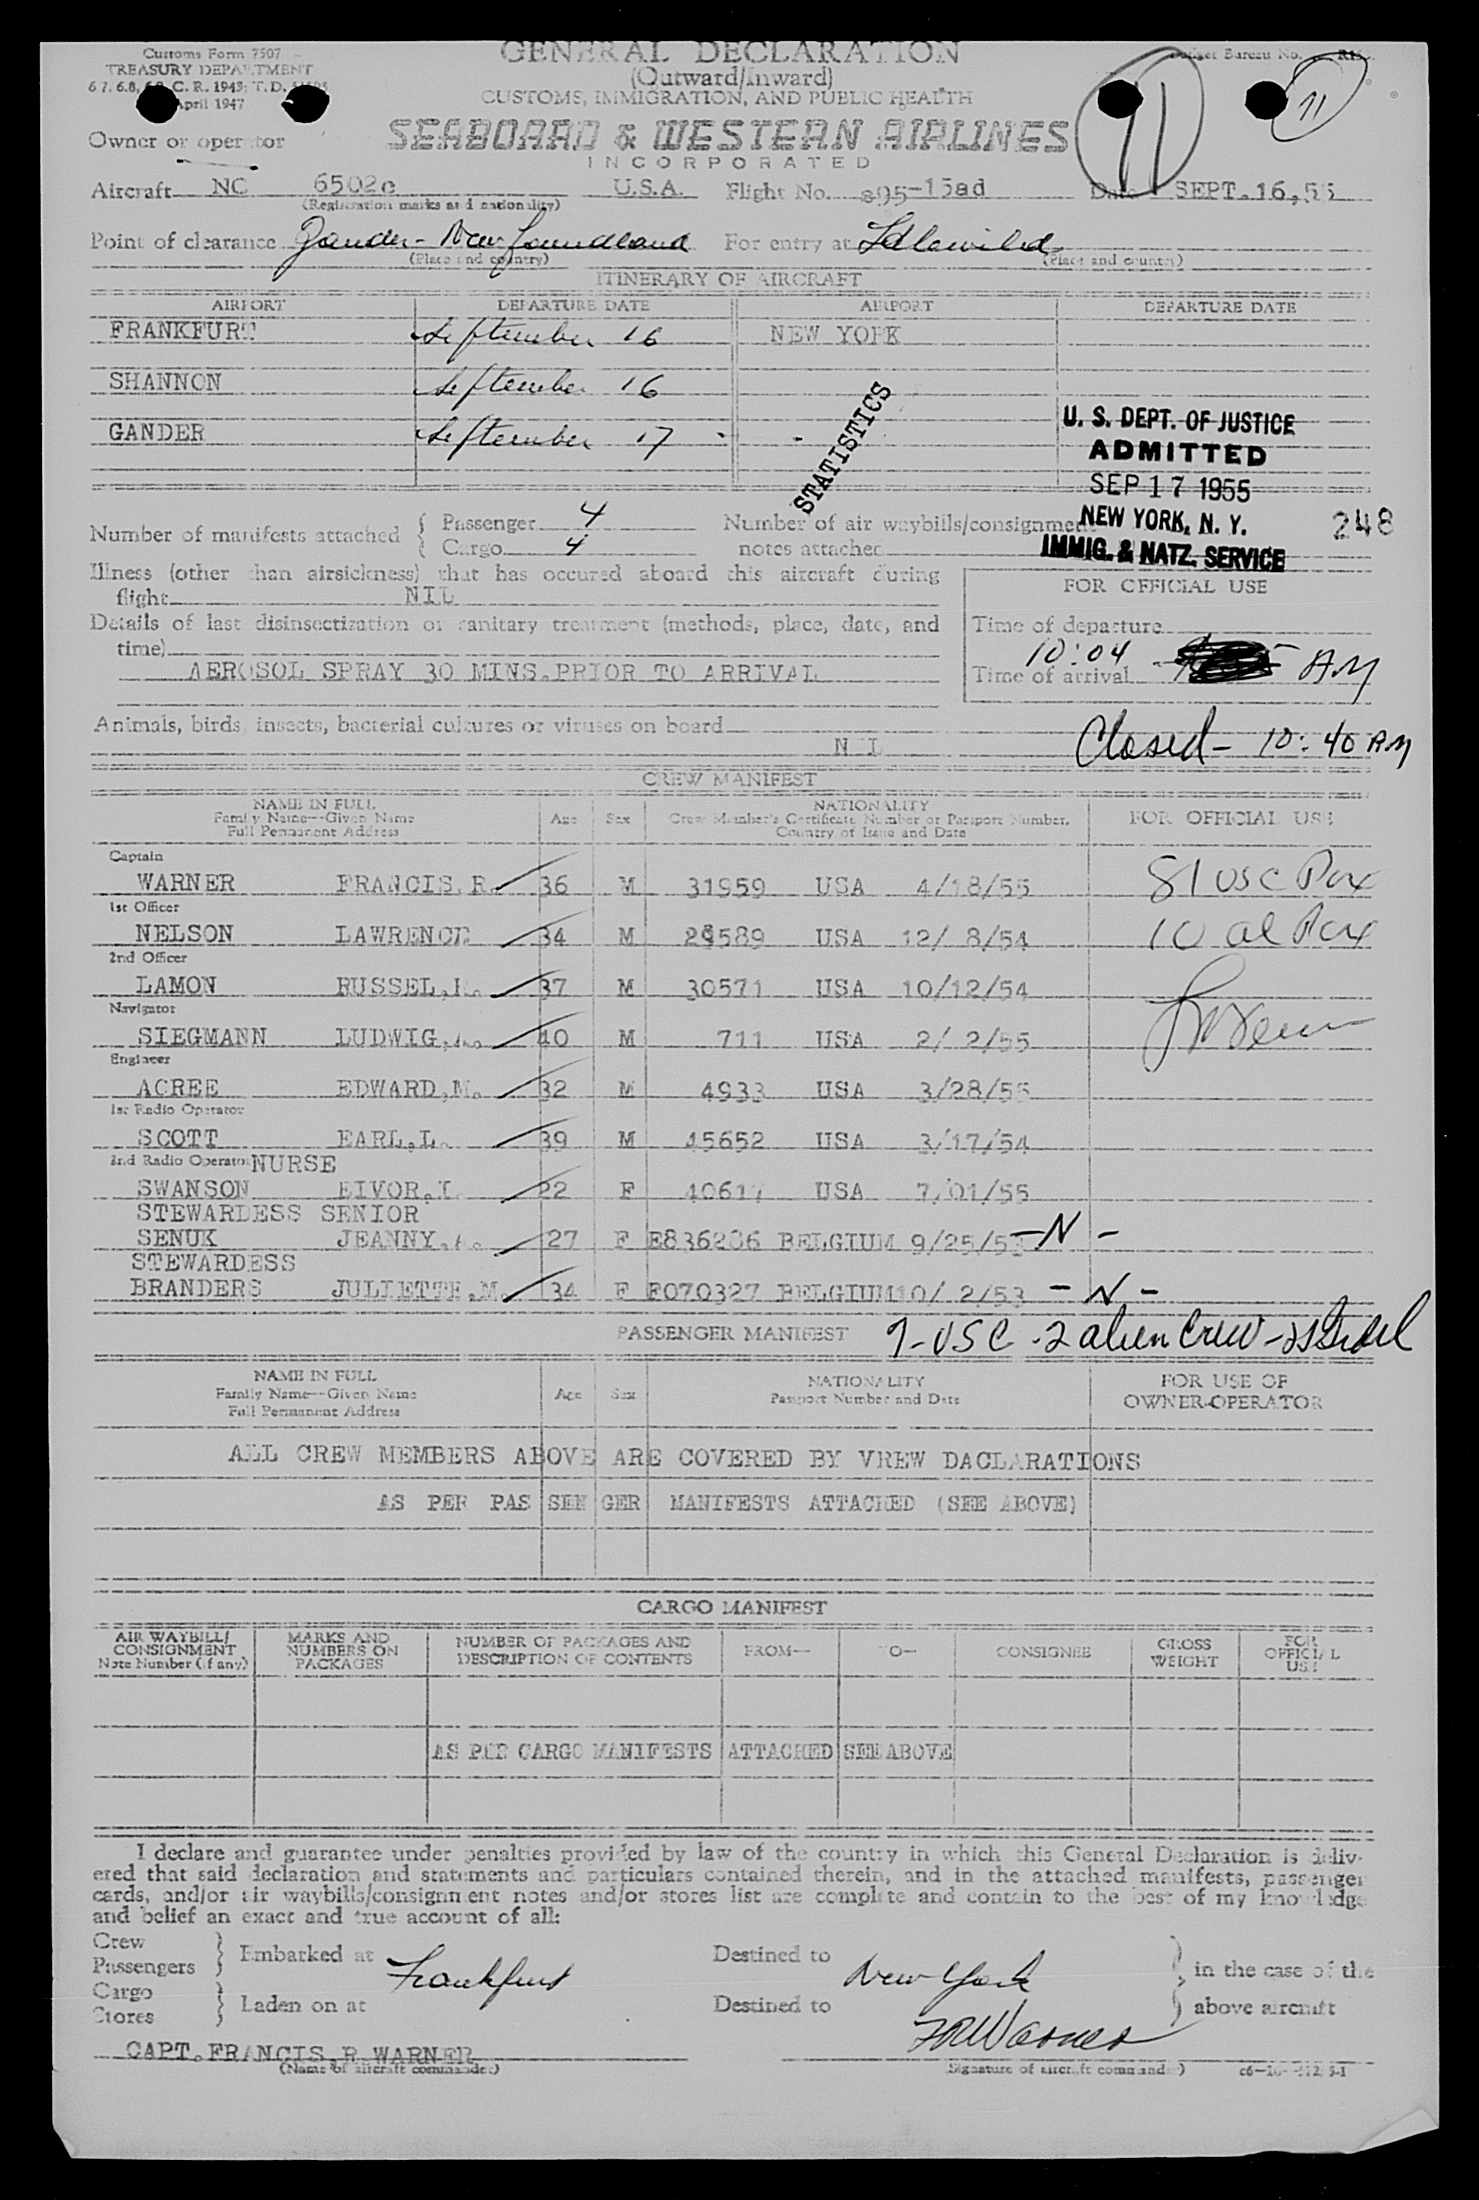 Customs Form 7507
TREASURY DEPARTMENT
6.7, 6.8, C. R., 1943; T. D.
April 1947
GENERAL DECLARATION
(Outward/Inward)
CUSTOMS, IMMIGRATION, AND PUBLIC HEALTH
Budget Bureau No.
11
11
Owner or operator
SEABOARD & WESTERN AIRLINES
INCORPORATED
Aircraft NC 6502c U.S.A. Flight No. s95-15ad Date SEPT.16,55
(Registration marks and nationality)
Point of clearance Gander - Newfoundland For entry at Idlewild
(Place and country) (Place and country)
ITINERARY OF AIRCRAFT
AIRPORT DEPARTURE DATE AIRPORT DEPARTURE DATE
FRANKFURT September 16 NEW YORK
SHANNON September 16
GANDER September 17 - -
STATISTICS
U. S. DEPT. OF JUSTICE
ADMITTED
SEP 17 1955
NEW YORK, N. Y.
IMMIG. & NATZ. SERVICE
248
Number of manifests attached { Passenger 4 Number of air waybills/consignment
{ Cargo 4 notes attached
Illness (other than airsickness) that has occured aboard this aircraft during
flight NIL
FOR OFFICIAL USE
Details of last disinsectization or sanitary treatment (methods, place, date, and
time)
AEROSOL SPRAY 30 MINS.PRIOR TO ARRIVAL
Time of departure
10:04
Time of arrival AM
Animals, birds, insects, bacterial cultures or viruses on board
N I L
Closed - 10:40 AM
CREW MANIFEST
NAME IN FULL
Family Name--Given Name
Full Permanent Address
Age Sex
NATIONALITY
Crew Member's Certificate Number or Passport Number,
Country of Issue and Date
FOR OFFICIAL USE
Captain
WARNER FRANCIS.R. 36 M 31959 USA 4/18/55 81 USC Pax
1st Officer
NELSON LAWRENCE 34 M 29589 USA 12/ 8/54 10 al Pax
2nd Officer
LAMON RUSSEL.L. 37 M 30571 USA 10/12/54
Navigator
SIEGMANN LUDWIG.A. 40 M 711 USA 2/ 2/55
Engineer
ACREE EDWARD,M. 32 M 4933 USA 3/28/55
1st Radio Operator
SCOTT EARL.L. 39 M 45652 USA 3/17/54
2nd Radio Operator NURSE
SWANSON EIVOR.I. 22 F 40617 USA 7/01/55
STEWARDESS SENIOR
SENUK JEANNY.A. 27 F E836206 BELGIUM 9/25/53 - N -
STEWARDESS
BRANDERS JULIETTE.M. 34 F F070327 BELGIUM10/ 2/53 - N -
PASSENGER MANIFEST 7-USC - 2 alien Crew -
NAME IN FULL
Family Name--Given Name
Full Permanent Address
Age Sex
NATIONALITY
Passport Number and Date
FOR USE OF
OWNER-OPERATOR
ALL CREW MEMBERS ABOVE ARE COVERED BY VREW DACLARATIONS
AS PER PAS SEN GER MANIFESTS ATTACHED (SEE ABOVE)
CARGO MANIFEST
AIR WAYBILL/
CONSIGNMENT
Note Number (if any)
MARKS AND
NUMBERS ON
PACKAGES
NUMBER OF PACKAGES AND
DESCRIPTION OF CONTENTS
FROM-- TO-- CONSIGNEE
GROSS
WEIGHT
FOR
OFFICIAL
USE
AS PER CARGO MANIFESTS ATTACHED SEE ABOVE
I declare and guarantee under penalties provided by law of the country in which this General Declaration is deliv-
ered that said declaration and statements and particulars contained therein, and in the attached manifests, passenger
cards, and/or air waybills/consignment notes and/or stores list are complete and contain to the best of my knowledge
and belief an exact and true account of all:
Crew
Passengers } Embarked at Frankfurt Destined to New York } in the case of the
Cargo
Stores } Laden on at Destined to } above aircraft
FRWarner
CAPT.FRANCIS.R.WARNER
(Name of aircraft commander) (Signature of aircraft commander)